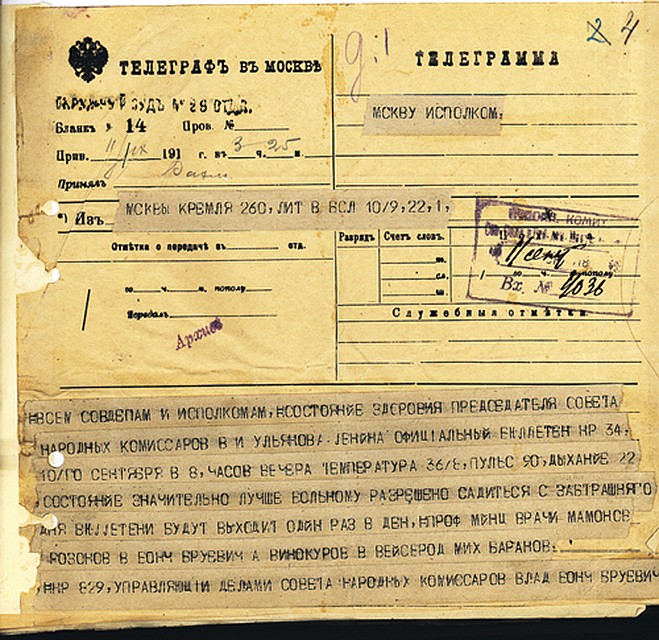 2 4
g.1
ТЕЛЕГРАФЪ ВЪ МОСКВѢ
ТЕЛЕГРАММА
Бланкъ № 14 Пров. №
МСКВУ ИСПОЛКОМ,
Прив. 11/IX 191 г. въ 3 ч. 25 м.
Принялъ
*) Изъ МСКВЫ КРЕМЛЯ 260, ЛИТ В ВСЛ 10/9, 22, 1,
Отмѣтка о передачѣ въ отд.
Разрядъ Счетъ словъ.
го ч. м. пополу
Передалъ
Архивъ
КОМИ
11 сент 18
Вх. № 4036
го ч. м. пополу
Служебныя отмѣтки
НВСЕМ СОВДЕПАМ И ИСПОЛКОМАМ, НСОСТОЯНИЕ ЗДОРОВИЯ ПРЕДСЕДАТЕЛЯ СОВЕТА
НАРОДНЫХ КОМИССАРОВ В И УЛЬЯНОВА-ЛЕНИНА ОФИЦІАЛЬНЫЙ БЮЛЛЕТЕН НР 34,
10/ГО СЕНТЯБРЯ В 8, ЧАСОВ ВЕЧЕРА ТЕМПЕРАТУРА 36/8, ПУЛЬС 90, ДЫХАНИЕ 22
,СОСТОЯНИЕ ЗНАЧИТЕЛЬНО ЛУЧШЕ БОЛЬНОМУ РАЗРЕШЕНО САДИТЬСЯ С ЗАВТРАШНЯГО
ДНЯ БЮЛЛЕТЕНИ БУДУТ ВЫХОДИТ ОДИН РАЗ В ДЕН, НПРОФ МИНЦ ВРАЧИ МАМОНОВ
РОЗОНОВ В БОНЧ БРУЕВИЧ А ВИНОКУРОВ В ВЕЙСБРОД МИХ БАРАНОВ.
,ННР 829, УПРАВЛЯЮЩІЙ ДЕЛАМИ СОВЕТА НАРОДНЫХ КОМИССАРОВ ВЛАД БОНЧ БРУЕВИЧ